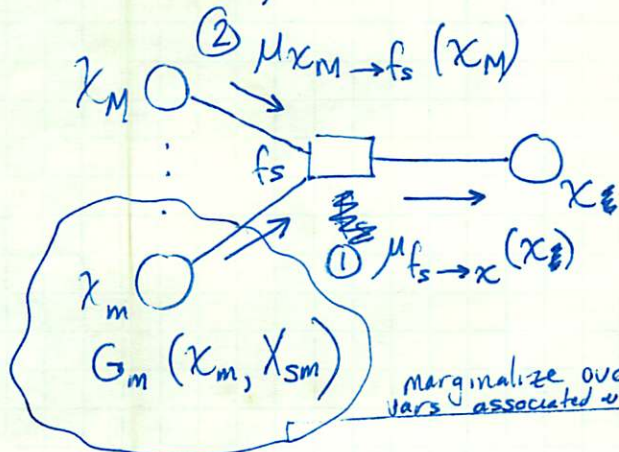 ② μ x_M → f_s (x_M)
x_M
f_s
x
① μ f_s → x (x)
x_m
G_m (x_m, X_sm)
marginalize
vars associated